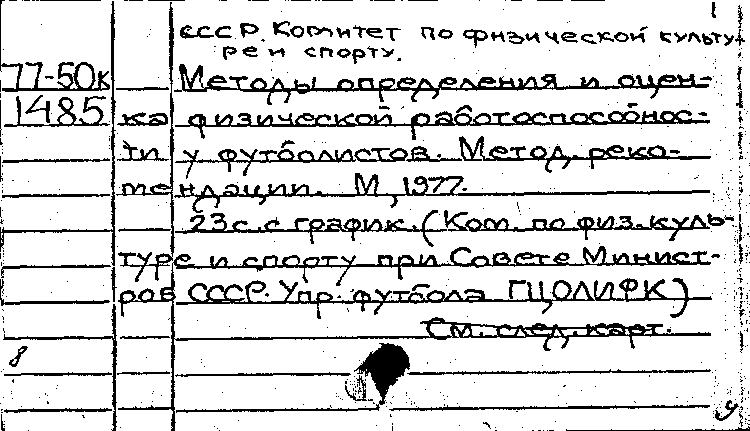 1
СССР. Комитет по физической культу-
ре и спорту.
77-50к Методы определения и оцен-
1485 ка физической работоспособнос-
ти у футболистов. Метод. реко-
мендации. М., 1977.
23с. с график. (Ком. по физ. куль-
туре и спорту при Совете Минист-
ров СССР. Упр. футбола ГЦОЛИФК)
См. след. карт.
8
9